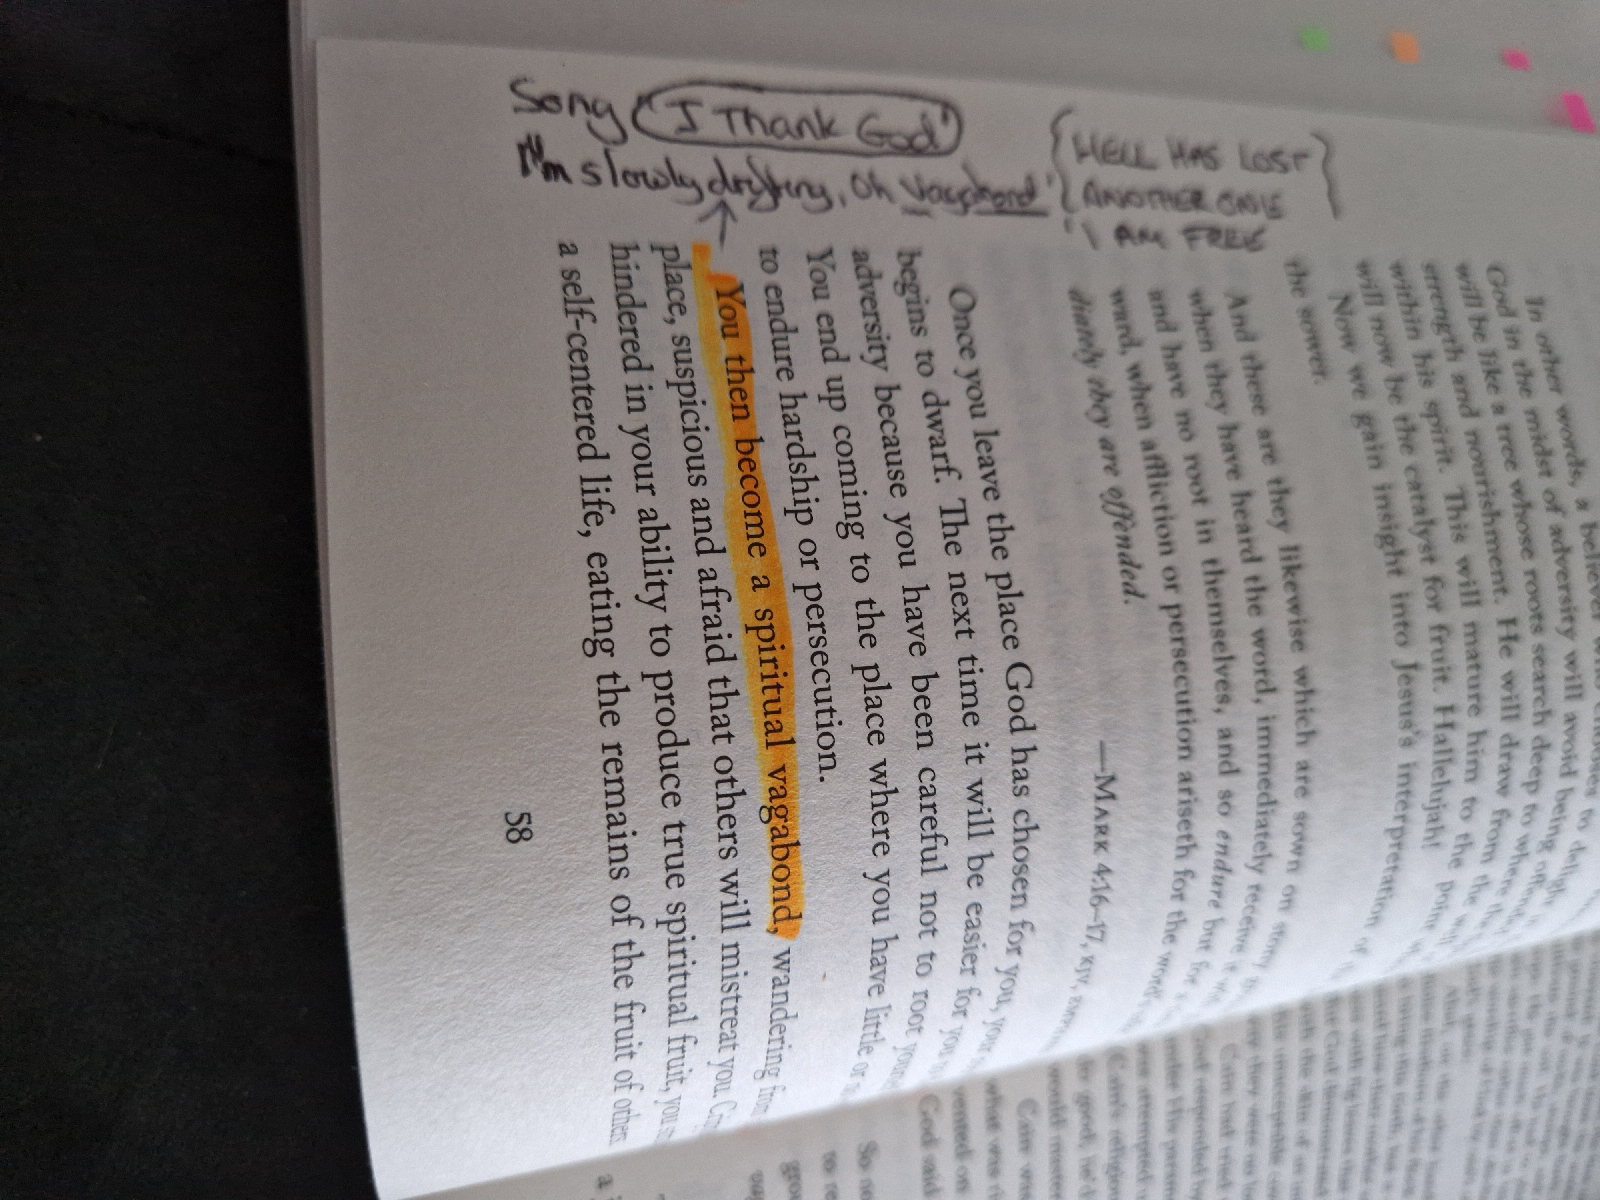 Song "I Thank God"
I'm slowly drifting, oh vagabond'
{HELL HAS LOST
ANOTHER ONE}
I AM FREE
In other words, a believer who chooses to delight
God in the midst of adversity will avoid being
will be like a tree whose roots search deep to where
strength and nourishment. He will draw from the
within his spirit. This will mature him to the point
will now be the catalyst for fruit. Hallelujah!
Now we gain insight into Jesus's interpretation
the sower.
And these are they likewise which are sown on stony
when they have heard the word, immediately receive it
and have no root in themselves, and so endure but for
ward, when affliction or persecution ariseth for the word
diately they are offended.
—MARK 4:16–17, KJV,
Once you leave the place God has chosen for you, your
begins to dwarf. The next time it will be easier for you
adversity because you have been careful not to root
You end up coming to the place where you have little or
to endure hardship or persecution.
You then become a spiritual vagabond, wandering from
place, suspicious and afraid that others will mistreat you.
hindered in your ability to produce true spiritual fruit, you
a self-centered life, eating the remains of the fruit of others
58